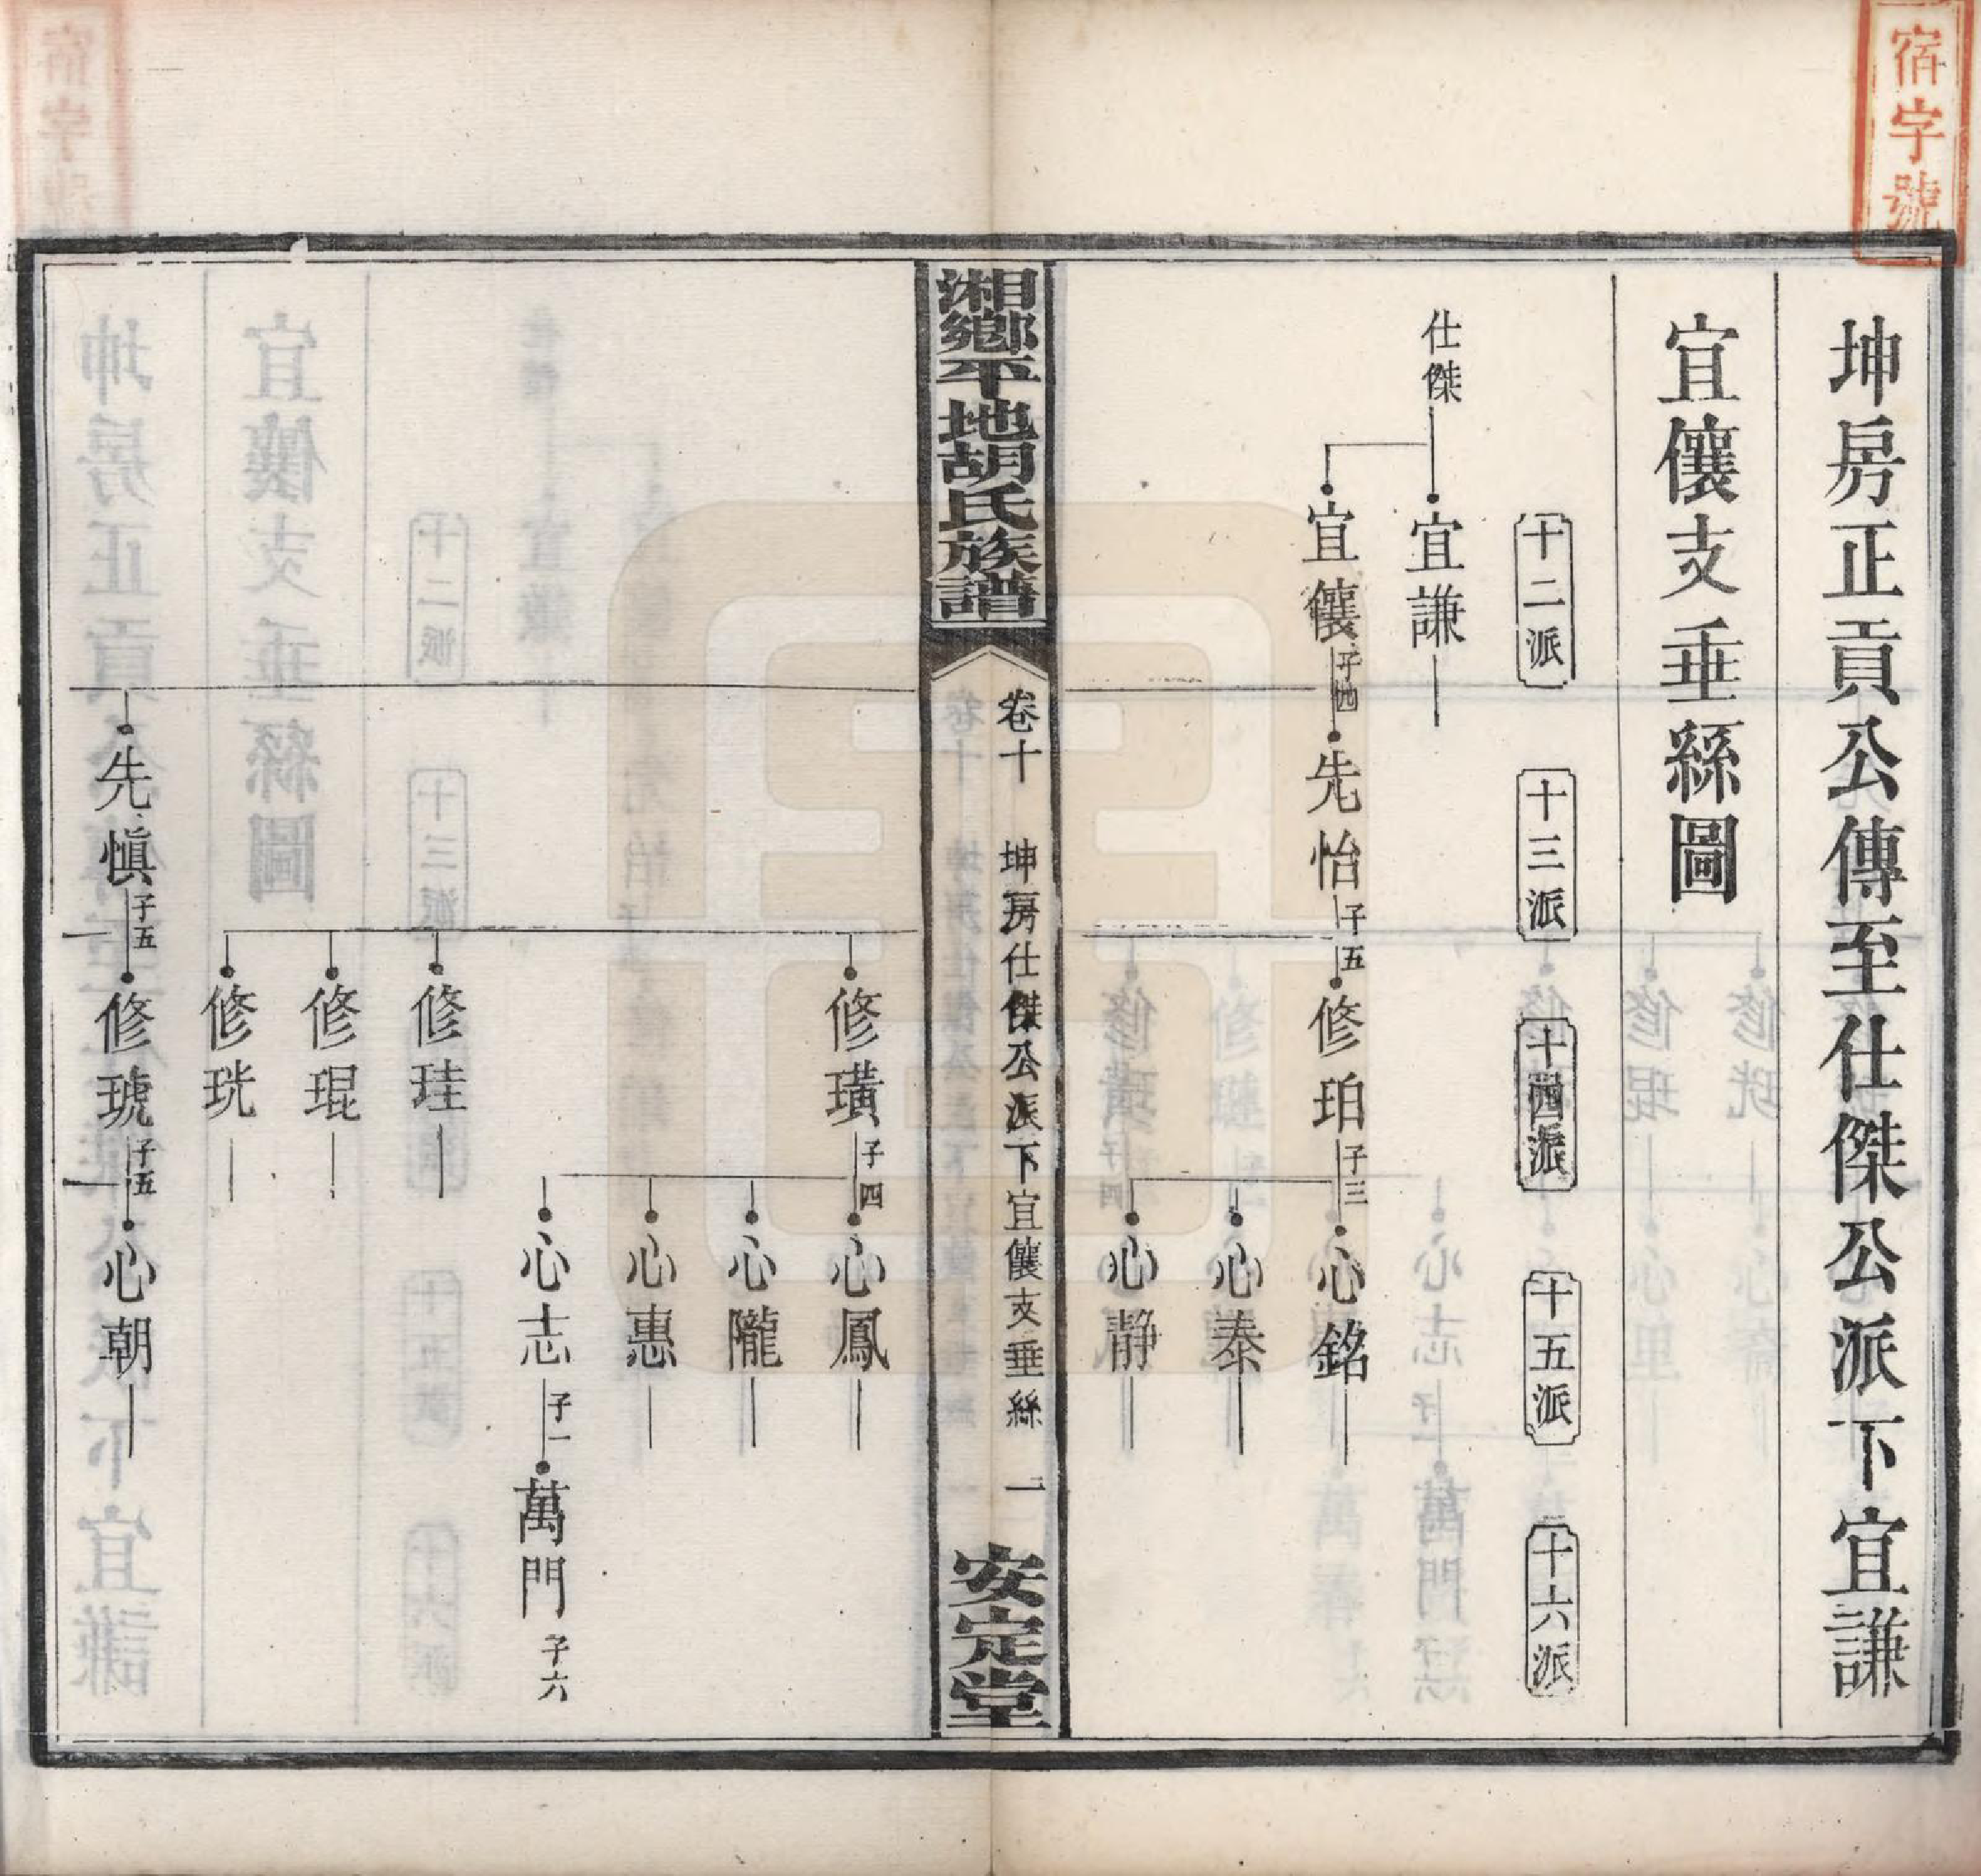 宿字號
坤房正貢公傳至仕傑公派下宜謙
宜儴支垂絲圖
十二派
十三派
十四派
十五派
十六派
仕傑
宜謙
宜儴 子四
先怡 子五
修珀 子三
心銘
心泰
心靜
湘鄉平地胡氏族譜
卷十
坤房仕傑公派下宜儴支垂絲
一
安定堂
修璜 子四
心鳳
心隴
心惠
心志 子一
萬門 子六
修珪
修琨
修珖
先慎 子五
修琥 子五
心朝